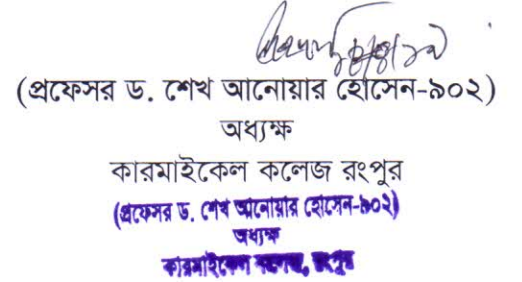 (প্রফেসর ড. শেখ আনোয়ার হোসেন-৯০২)
অধ্যক্ষ
কারমাইকেল কলেজ রংপুর
(প্রফেসর ড. শেখ আনোয়ার হোসেন-৯০২)
অধ্যক্ষ
কারমাইকেল কলেজ, রংপুর